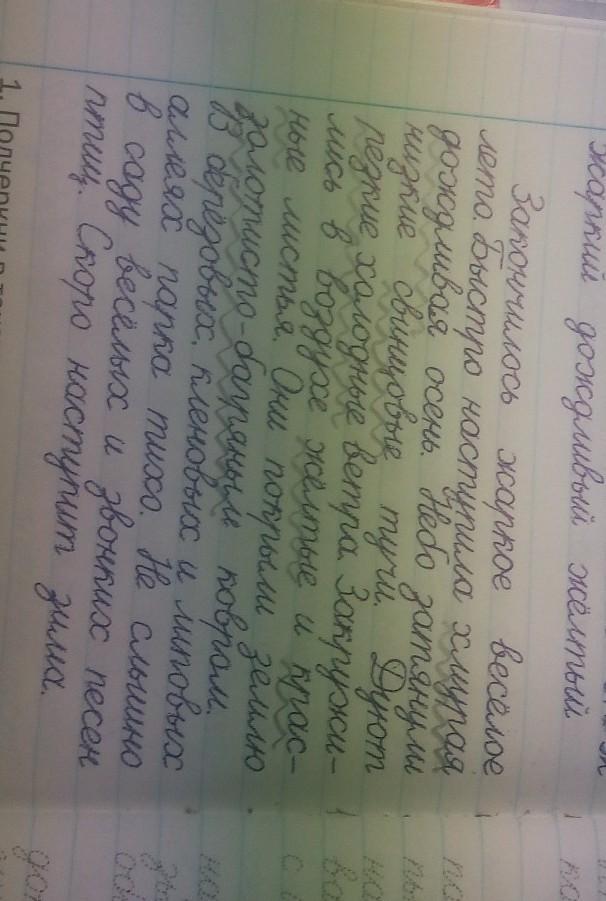 жаркий дождливый жёлтый
Закончилось жаркое весёлое
лето. Быстро наступила хмурая
дождливая осень. Небо затянули
низкие свинцовые тучи. Дуют
редкие холодные ветра. Закружи-
лись в воздухе жёлтые и крас-
ные листья. Они покрыли землю
золотисто-багряным ковром.
В берёзовых, кленовых и липовых
аллеях парка тихо. Не слышно
в саду весёлых и звонких песен
птиц. Скоро наступит зима.
1. Подчеркни в